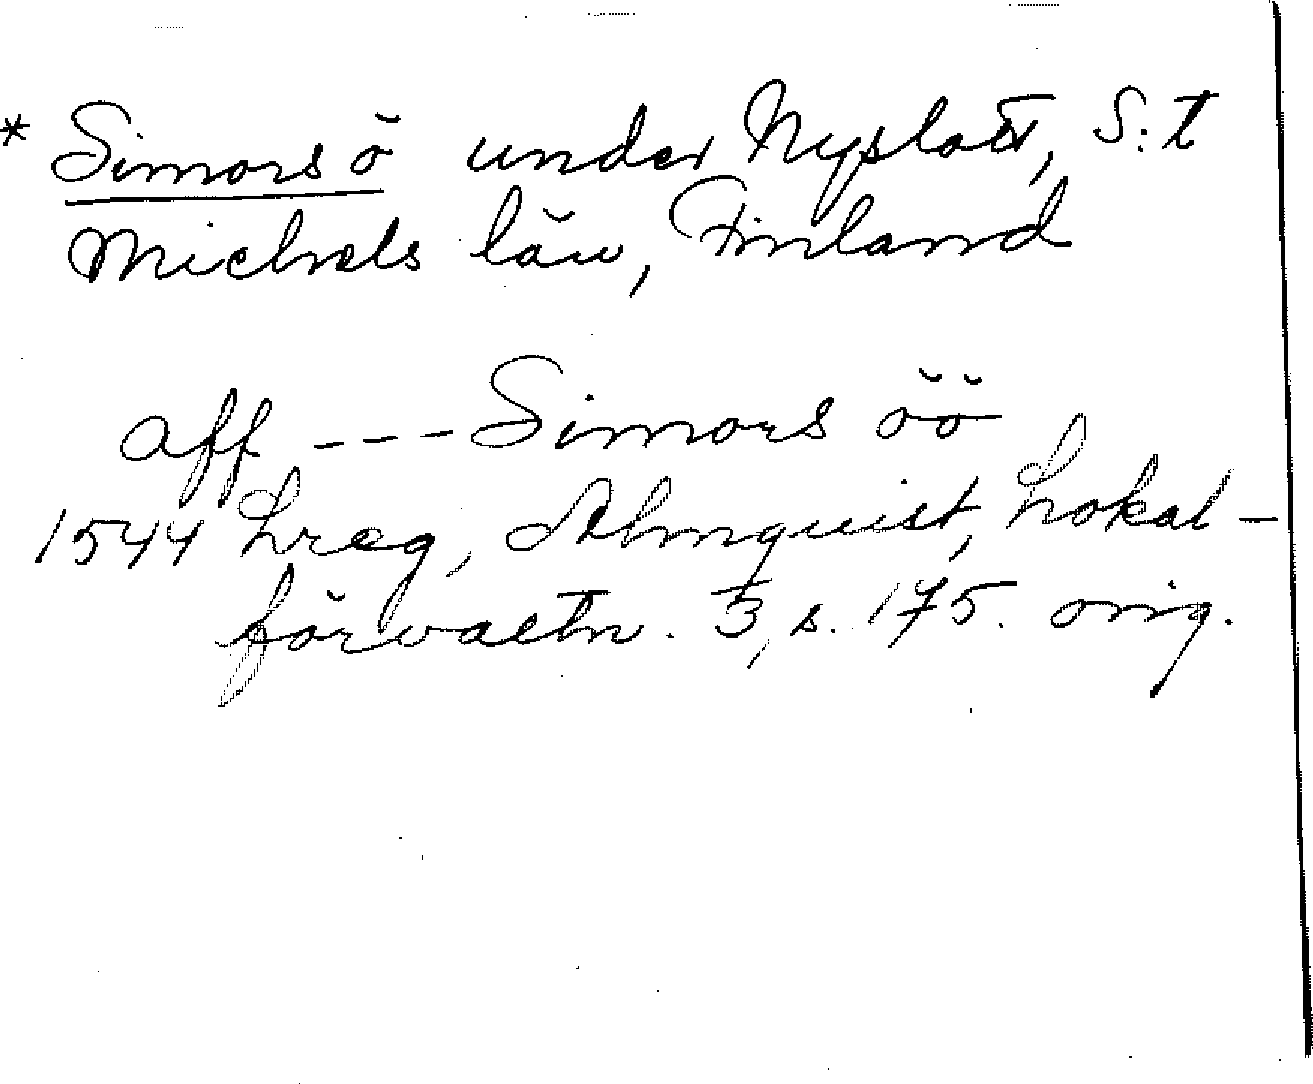 * Simorsö under Nyslott, S:t
Michels län, Finland
aff --- Simors öö
1544 Lreg, Almquist, Lokal-
förvaltn. 3, s. 175. orig.